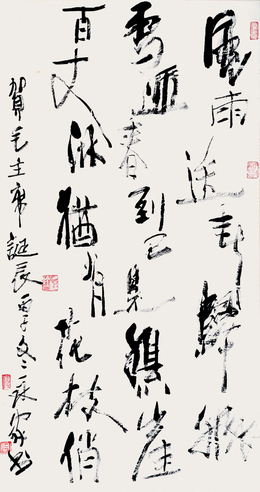 風雨送春歸飛
雪迎春到已是懸崖
百丈冰猶有花枝俏
賀毛主席誕辰冬